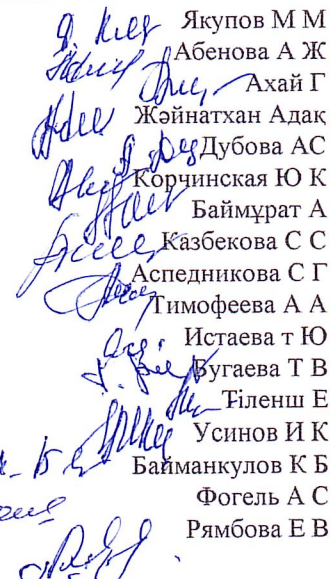 Якупов М М
Абенова А Ж
Ахай Г
Жәйнатхан Адақ
Дубова АС
Корчинская Ю К
Баймұрат А
Казбекова С С
Аспедникова С Г
Тимофеева А А
Истаева т Ю
Бугаева Т В
Тіленш Е
Усинов И К
Байманкулов К Б
Фогель А С
Рямбова Е В